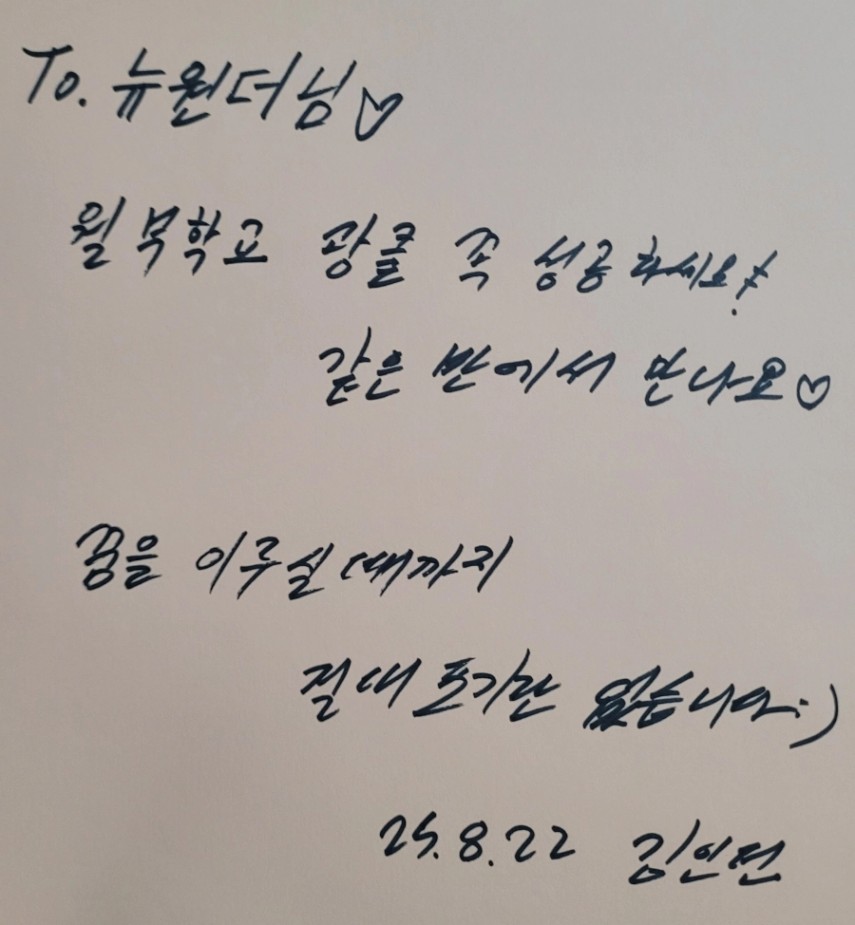 To. 뉴원더님♡
월부학교 광클 꼭 성공하세요!
같은 반에서 만나요♡
꿈을 이루실 때까지
절대 포기란 없습니다:)
25.8.22 김인턴